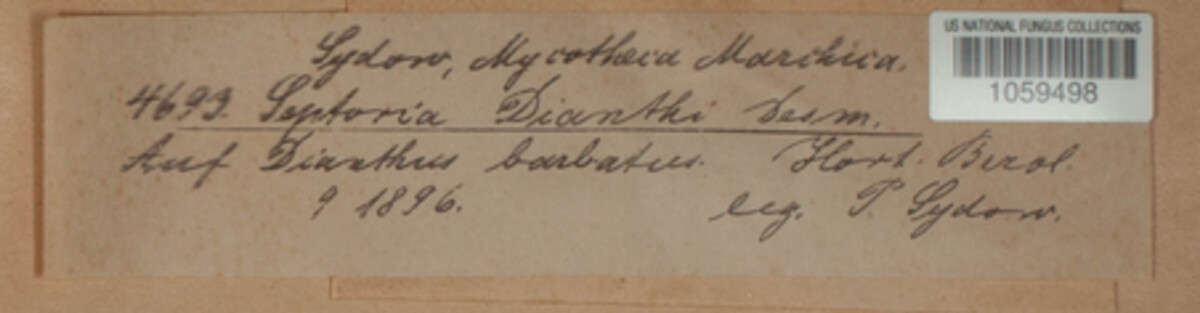 Sydow, Mycotheca Marchica.
US NATIONAL FUNGUS COLLECTIONS
1059498
4693. Septoria Dianthi Desm.
Auf Dianthus barbatus. Hort. Berol.
9 1896. leg. P. Sydow.